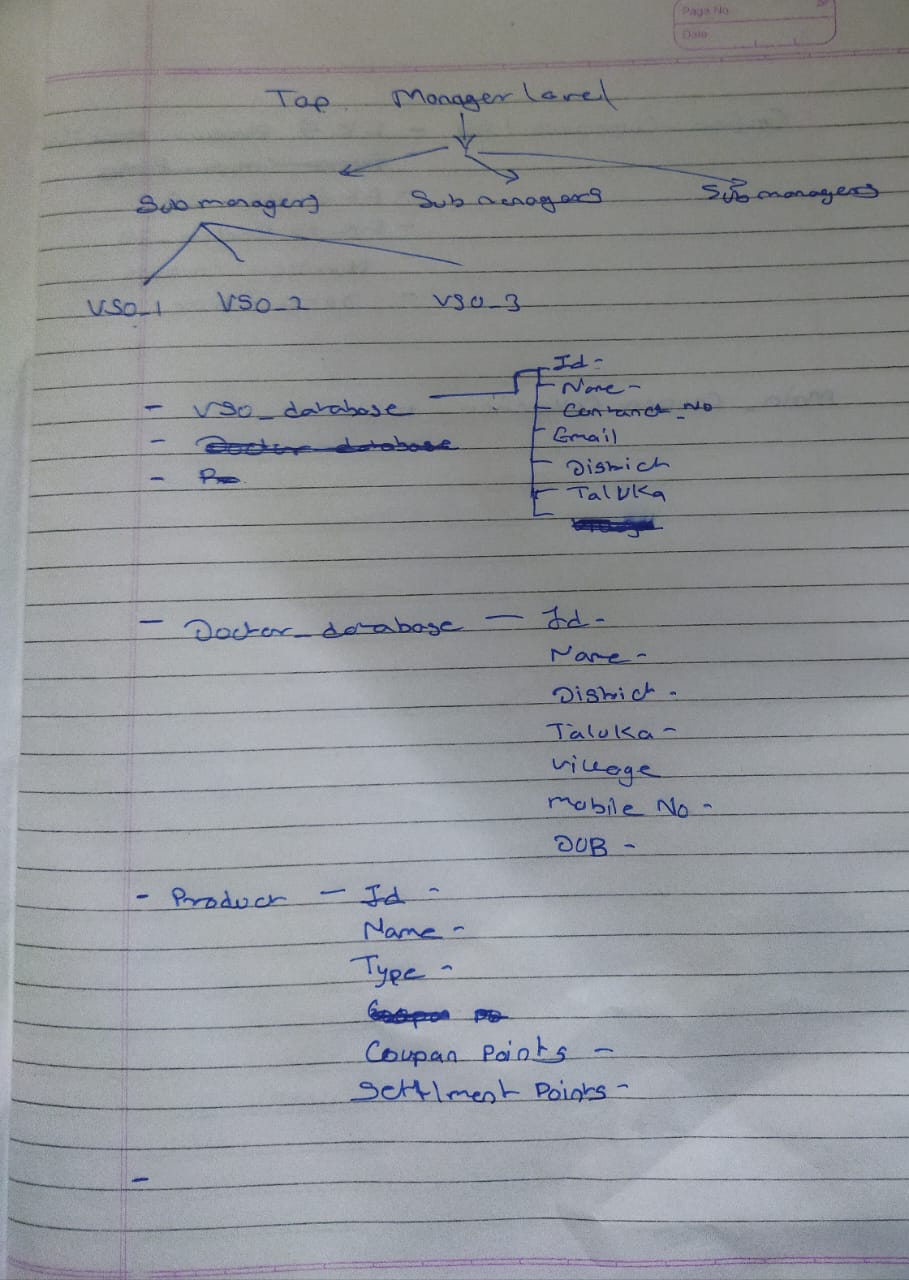 Page No.
Date
Top Manager Level
Sub managers Sub managers Sub managers
VSO_1 VSO_2 VSO_3
- VSO_database
Id -
Name -
Contanct_No
Email
District
Taluka
- Doctor database
- P
- Doctor_database - Id -
Name -
District -
Taluka -
Village
Mobile No -
DOB -
- Product - Id -
Name -
Type -
Coupan Points -
Settlment Points -
-